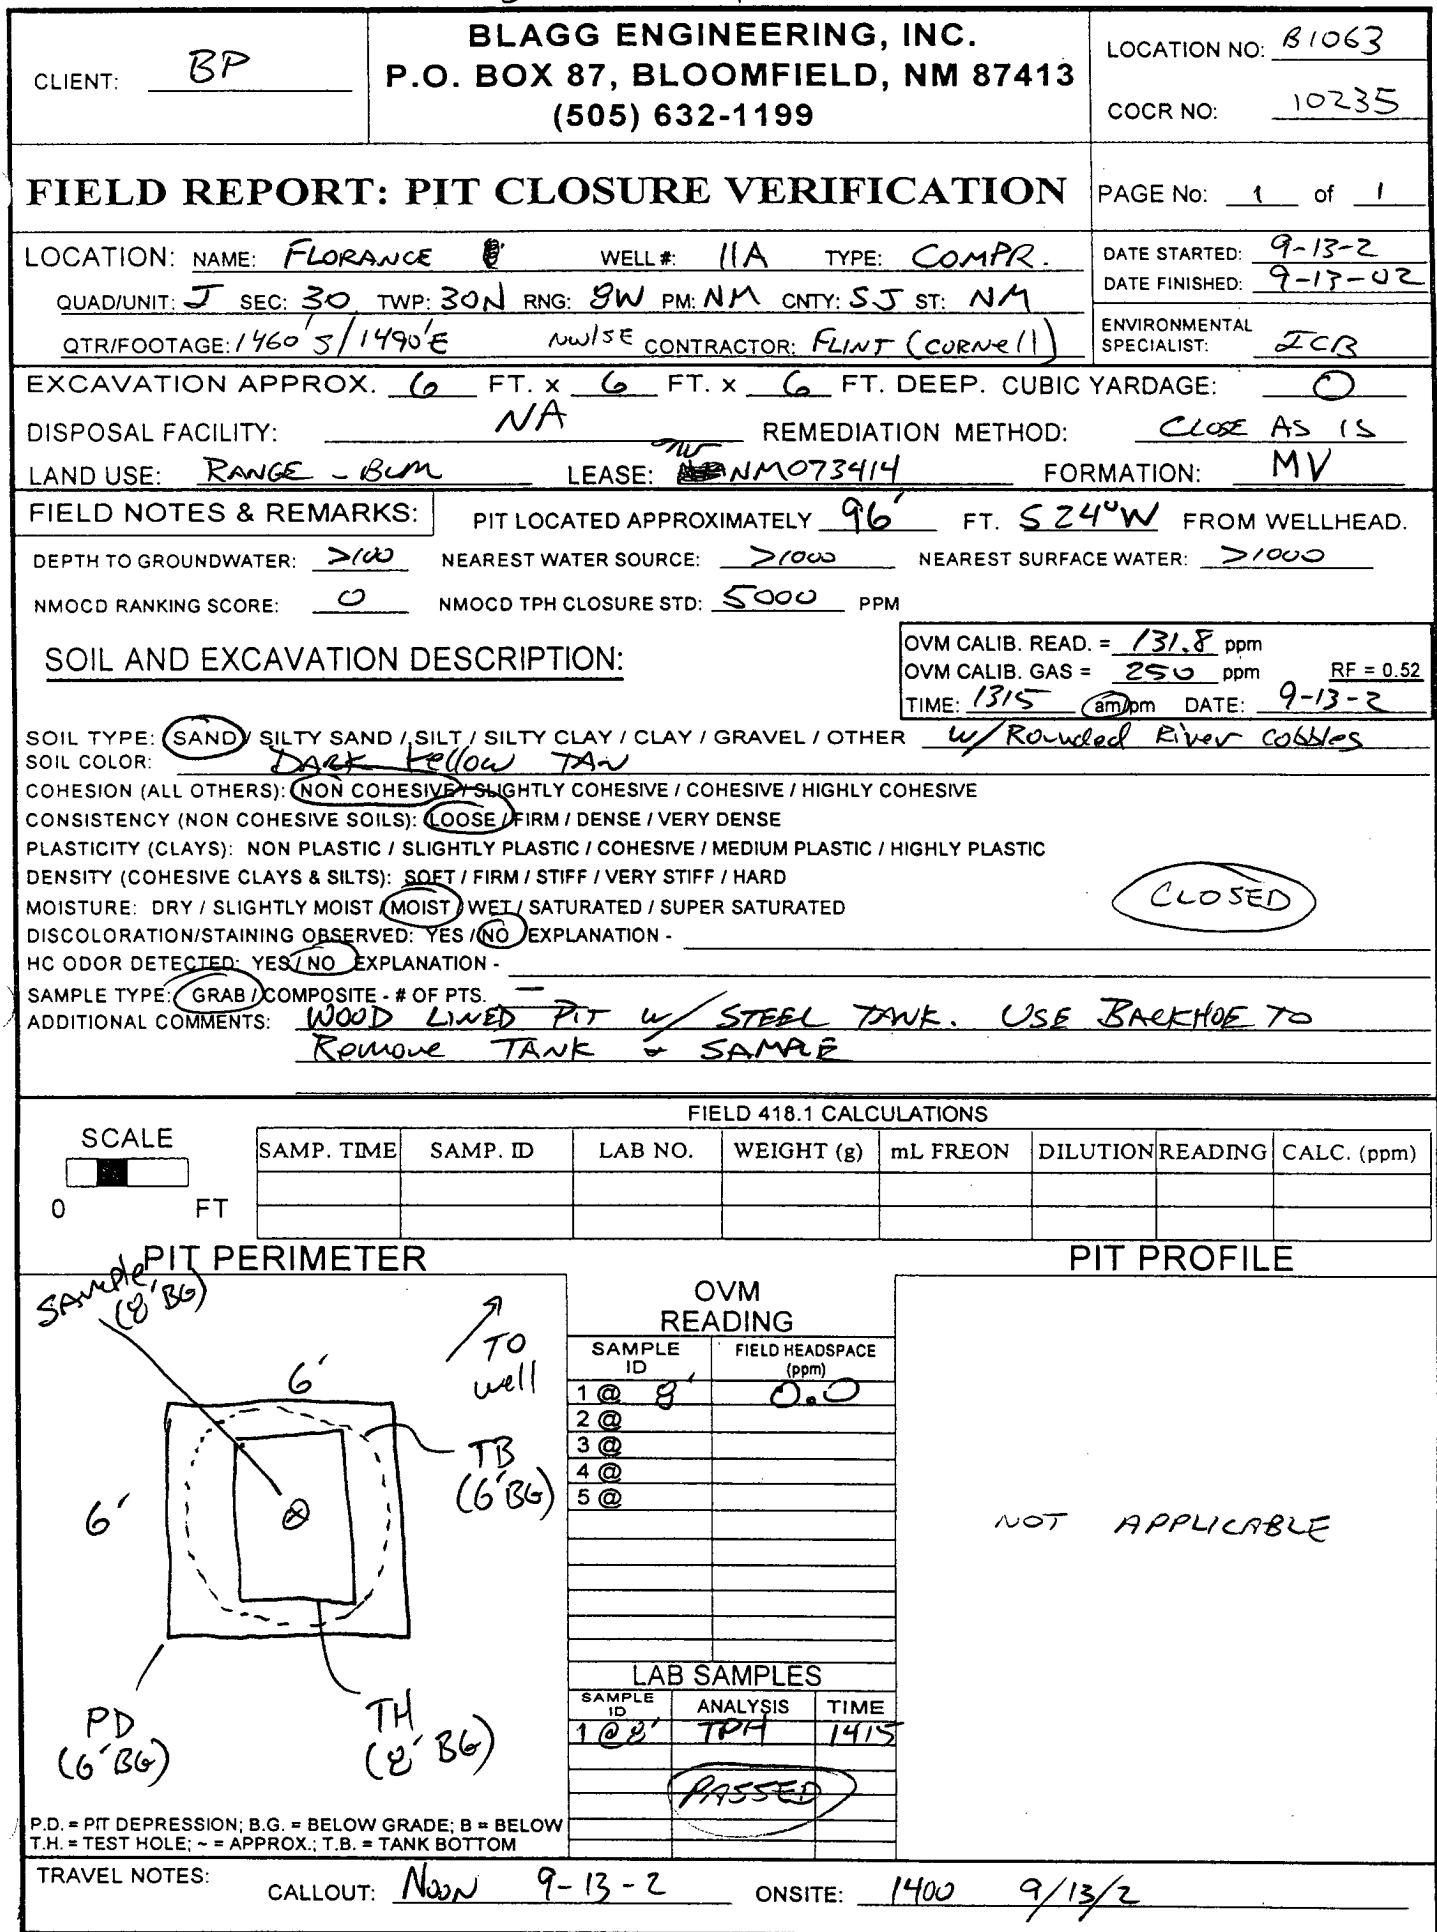 BLAGG ENGINEERING, INC.
P.O. BOX 87, BLOOMFIELD, NM 87413
(505) 632-1199
CLIENT: BP
LOCATION NO: B1063
COCR NO: 10235
FIELD REPORT: PIT CLOSURE VERIFICATION
PAGE No: 1 of 1
LOCATION: NAME: FLORANCE WELL #: 11A TYPE: COMPR.
QUAD/UNIT: J SEC: 30 TWP: 30N RNG: 8W PM: NM CNTY: SJ ST: NM
QTR/FOOTAGE: 1460'S/1490'E NW/SE CONTRACTOR: FLINT (CORNELL)
DATE STARTED: 9-13-2
DATE FINISHED: 9-13-02
ENVIRONMENTAL
SPECIALIST: JCB
EXCAVATION APPROX. 6 FT. x 6 FT. x 6 FT. DEEP. CUBIC YARDAGE: 0
DISPOSAL FACILITY: NA REMEDIATION METHOD: CLOSE AS IS
LAND USE: RANGE - BLM LEASE: NM073414 FORMATION: MV
FIELD NOTES & REMARKS: PIT LOCATED APPROXIMATELY 96' FT. S24°W FROM WELLHEAD.
DEPTH TO GROUNDWATER: >100 NEAREST WATER SOURCE: >1000 NEAREST SURFACE WATER: >1000
NMOCD RANKING SCORE: 0 NMOCD TPH CLOSURE STD: 5000 PPM
SOIL AND EXCAVATION DESCRIPTION:
OVM CALIB. READ. = 131.8 ppm
OVM CALIB. GAS = 250 ppm RF = 0.52
TIME: 1315 am/pm DATE: 9-13-2
SOIL TYPE: SAND / SILTY SAND / SILT / SILTY CLAY / CLAY / GRAVEL / OTHER w/ Rounded River cobbles
SOIL COLOR: DARK Yellow TAN
COHESION (ALL OTHERS): NON COHESIVE / SLIGHTLY COHESIVE / COHESIVE / HIGHLY COHESIVE
CONSISTENCY (NON COHESIVE SOILS): LOOSE / FIRM / DENSE / VERY DENSE
PLASTICITY (CLAYS): NON PLASTIC / SLIGHTLY PLASTIC / COHESIVE / MEDIUM PLASTIC / HIGHLY PLASTIC
DENSITY (COHESIVE CLAYS & SILTS): SOFT / FIRM / STIFF / VERY STIFF / HARD
MOISTURE: DRY / SLIGHTLY MOIST / MOIST / WET / SATURATED / SUPER SATURATED
CLOSED
DISCOLORATION/STAINING OBSERVED: YES / NO EXPLANATION -
HC ODOR DETECTED: YES / NO EXPLANATION -
SAMPLE TYPE: GRAB / COMPOSITE - # OF PTS. —
ADDITIONAL COMMENTS: WOOD LINED PIT w/ STEEL TANK. USE BACKHOE TO
Remove TANK & SAMPLE
SCALE
0 FT
FIELD 418.1 CALCULATIONS
SAMP. TIME SAMP. ID LAB NO. WEIGHT (g) mL FREON DILUTION READING CALC. (ppm)
PIT PERIMETER
SAMPLE
(8' BG)
TO
well
6'
TB
(6'BG)
6'
PD
(6'BG)
TH
(8'BG)
P.D. = PIT DEPRESSION; B.G. = BELOW GRADE; B = BELOW
T.H. = TEST HOLE; ~ = APPROX.; T.B. = TANK BOTTOM
OVM
READING
SAMPLE ID FIELD HEADSPACE (ppm)
1 @ 8' 0.0
2 @
3 @
4 @
5 @
LAB SAMPLES
SAMPLE ID ANALYSIS TIME
1 @ 8' TPH 1415
PASSED
PIT PROFILE
NOT APPLICABLE
TRAVEL NOTES: CALLOUT: NOON 9-13-2 ONSITE: 1400 9/13/2